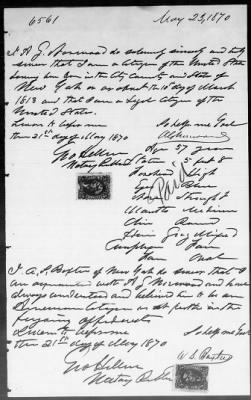 6561 May 23, 1870
I, A. G. do solemnly sincerely and truly
swear that I am a citizen of the United States
born in the City County and State of
New York on or about the 10th day of March
1813 and that I am a Loyal Citizen of the
United States.
Sworn to before me So help me God
this 21st day of May 1870
Geo Age 57 years
Notary Public 5 feet 8
Forehead High
Eyes Blue
Paid
Nose Straight
Mouth Medium
Chin Round
Hair Gray Mixed
Complexion Fair
Face Oval
I A. S. Baxter of New York do swear that I
am acquainted with A. G. and have
always understood and believed him to be an
American Citizen as set forth in the
foregoing affidavit
Sworn to before me So help me God
this 21st day of May 1870
Geo
Notary Public